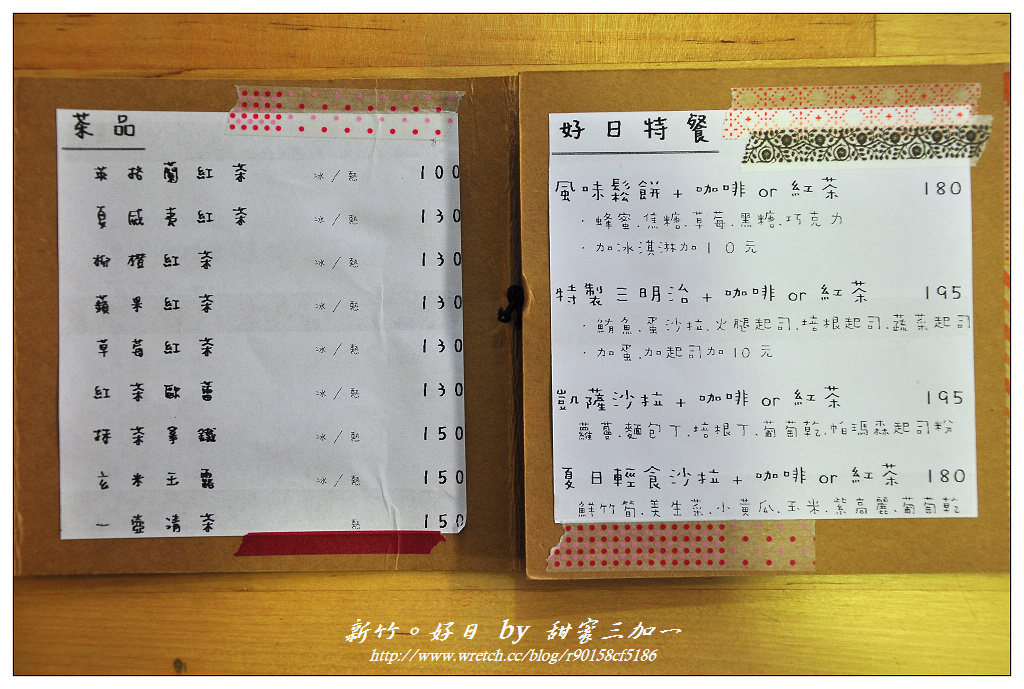 茶品
萊格蘭紅茶 冰/熱 100
夏威夷紅茶 冰/熱 130
柳橙紅茶 冰/熱 130
蘋果紅茶 冰/熱 130
草莓紅茶 冰/熱 130
紅茶歐蕾 冰/熱 130
抹茶拿鐵 冰/熱 150
玄米玉露 冰/熱 150
一壺清茶 熱 150
好日特餐
風味鬆餅 + 咖啡 or 紅茶 180
·蜂蜜.焦糖.草莓.黑糖.巧克力
·加冰淇淋加10元
特製三明治 + 咖啡 or 紅茶 195
·鮪魚.蛋沙拉.火腿起司.培根起司.蔬菜起司
·加蛋.加起司加10元
凱薩沙拉 + 咖啡 or 紅茶 195
蘿蔓.麵包丁.培根丁.葡萄乾.帕瑪森起司粉
夏日輕食沙拉 + 咖啡 or 紅茶 180
鮮竹筍.美生菜.小黃瓜.玉米.紫高麗.葡萄乾
新竹。好日 by 甜蜜三加一
http://www.wretch.cc/blog/r90158cf5186